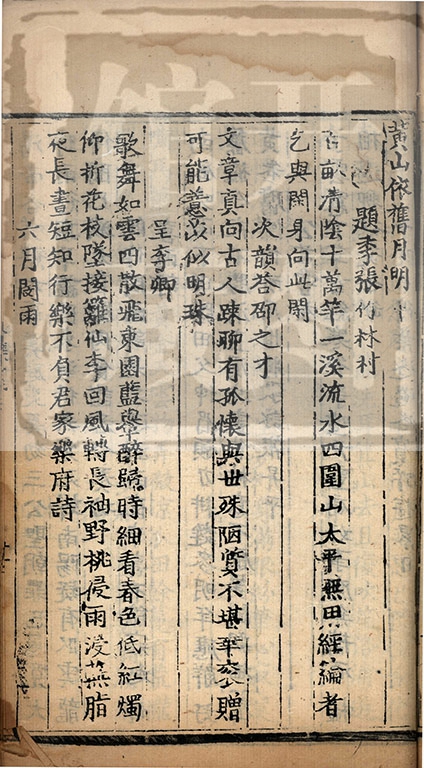 黃山依舊月明中
題李張竹林村
百畝清陰十萬竿一溪流水四圍山太平無用經綸者
乞與閑身向此閑
次韻答邵之才
文章真向古人踈聊有孤懷與世殊陋質不堪華衮贈
可能薏苡似明珠
呈李卿
歌舞如雲四散飛東園藍轝醉歸時細看春色低紅燭
仰折花枝墜接䍦仙李回風轉長袖野桃侵雨浸燕脂
夜長晝短知行樂不負君家樂府詩
六月閔雨